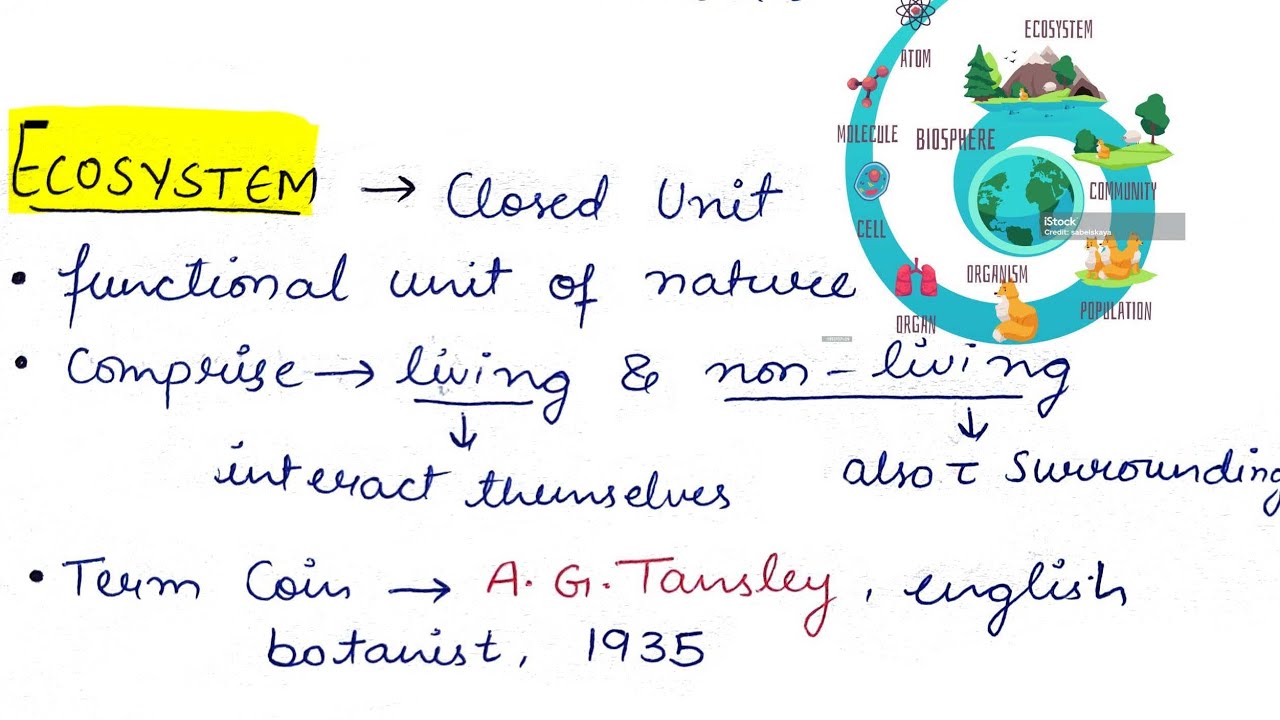 ATOM
ECOSYSTEM
MOLECULE
BIOSPHERE
COMMUNITY
CELL
iStock
Credit: sabelskaya
ORGANISM
ORGAN
POPULATION
ECOSYSTEM → Closed Unit
• functional unit of nature
• Comprise → living & non-living
↓ ↓
interact themselves also τ Surrounding
• Term Coin → A. G. Tansley, english
botanist, 1935